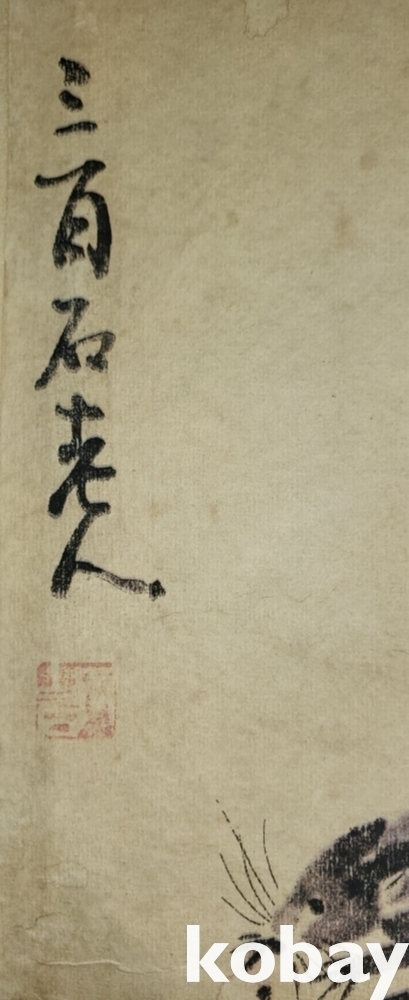 三百石老人
kobay